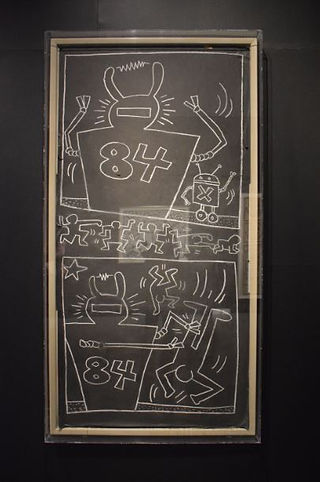 84
X
84